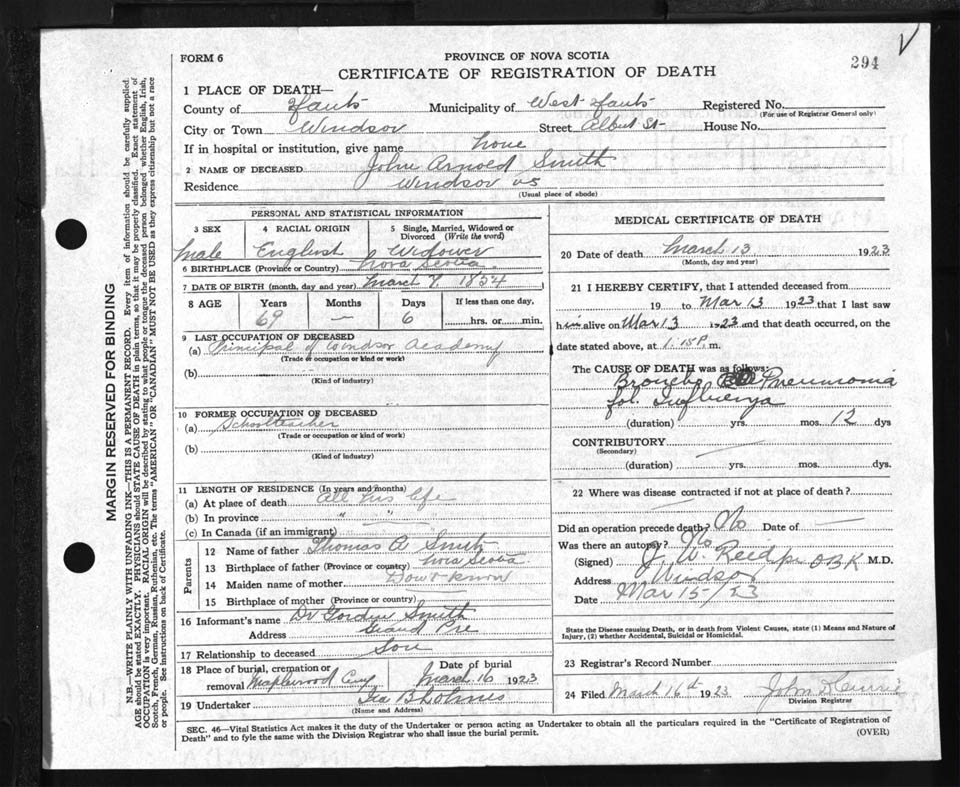 FORM 6
PROVINCE OF NOVA SCOTIA
CERTIFICATE OF REGISTRATION OF DEATH
294
1 PLACE OF DEATH—
County of Hants Municipality of West Hants Registered No.
(For use of Registrar General only)
City or Town Windsor Street Albert St- House No.
If in hospital or institution, give name none
2 NAME OF DECEASED John Arnold Smith
Residence Windsor NS
(Usual place of abode)
PERSONAL AND STATISTICAL INFORMATION
3 SEX Male
4 RACIAL ORIGIN English
5 Single, Married, Widowed or Divorced (Write the word) Widower
6 BIRTHPLACE (Province or Country) Nova Scotia
7 DATE OF BIRTH (month, day and year) March 7, 1854
8 AGE Years Months Days If less than one day,
69 — 6 hrs. or min.
9 LAST OCCUPATION OF DECEASED
(a) Principal of Windsor Academy
(Trade or occupation or kind of work)
(b)
(Kind of industry)
10 FORMER OCCUPATION OF DECEASED
(a) Schoolteacher
(Trade or occupation or kind of work)
(b)
(Kind of industry)
11 LENGTH OF RESIDENCE (In years and months)
(a) At place of death All his life
(b) In province " "
(c) In Canada (if an immigrant)
Parents
12 Name of father Thomas A Smith
13 Birthplace of father (Province or country) Nova Scotia
14 Maiden name of mother Don't know
15 Birthplace of mother (Province or country)
16 Informant's name Dr Gordon Smith
Address Grand Pre
17 Relationship to deceased Son
18 Place of burial, cremation or removal Maplewood Cmy Date of burial March 16 1923
19 Undertaker B Holmes
(Name and Address)
MEDICAL CERTIFICATE OF DEATH
20 Date of death March 13 1923
(Month, day and year)
21 I HEREBY CERTIFY, that I attended deceased from
19 to Mar 13 1923 that I last saw
him alive on Mar 13 1923 and that death occurred, on the
date stated above, at 1.15 P. m.
The CAUSE OF DEATH was as follows:
Broncho Pneumonia
fol. Influenza
(duration) yrs. mos. 12 dys
CONTRIBUTORY —
(Secondary)
(duration) yrs. mos. dys.
22 Where was disease contracted if not at place of death?
Did an operation precede death? No Date of —
Was there an autopsy? No
(Signed) J. W. Reid M.D.
Address Windsor
Date Mar 15/23
State the Disease causing Death, or in death from Violent Causes, state (1) Means and Nature of
Injury, (2) whether Accidental, Suicidal or Homicidal.
23 Registrar's Record Number
24 Filed March 16th 1923 John
Division Registrar
SEC. 46—Vital Statistics Act makes it the duty of the Undertaker or person acting as Undertaker to obtain all the particulars required in the "Certificate of Registration of
Death" and to fyle the same with the Division Registrar who shall issue the burial permit.
(OVER)
MARGIN RESERVED FOR BINDING
N.B.—WRITE PLAINLY WITH UNFADING INK—THIS IS A PERMANENT RECORD. Every item of information should be carefully supplied.
AGE should be stated EXACTLY. PHYSICIANS should STATE CAUSE OF DEATH in plain terms, so that it may be properly classified. Exact statement of
OCCUPATION is very important. RACIAL ORIGIN will be described by stating to what people or tongue the deceased person belonged, whether English, Irish,
Scotch, French, German, Russian, Ruthenian, etc. The terms "AMERICAN" or "CANADIAN" MUST NOT BE USED as they express citizenship but not a race
or people. See instructions on back of Certificate.